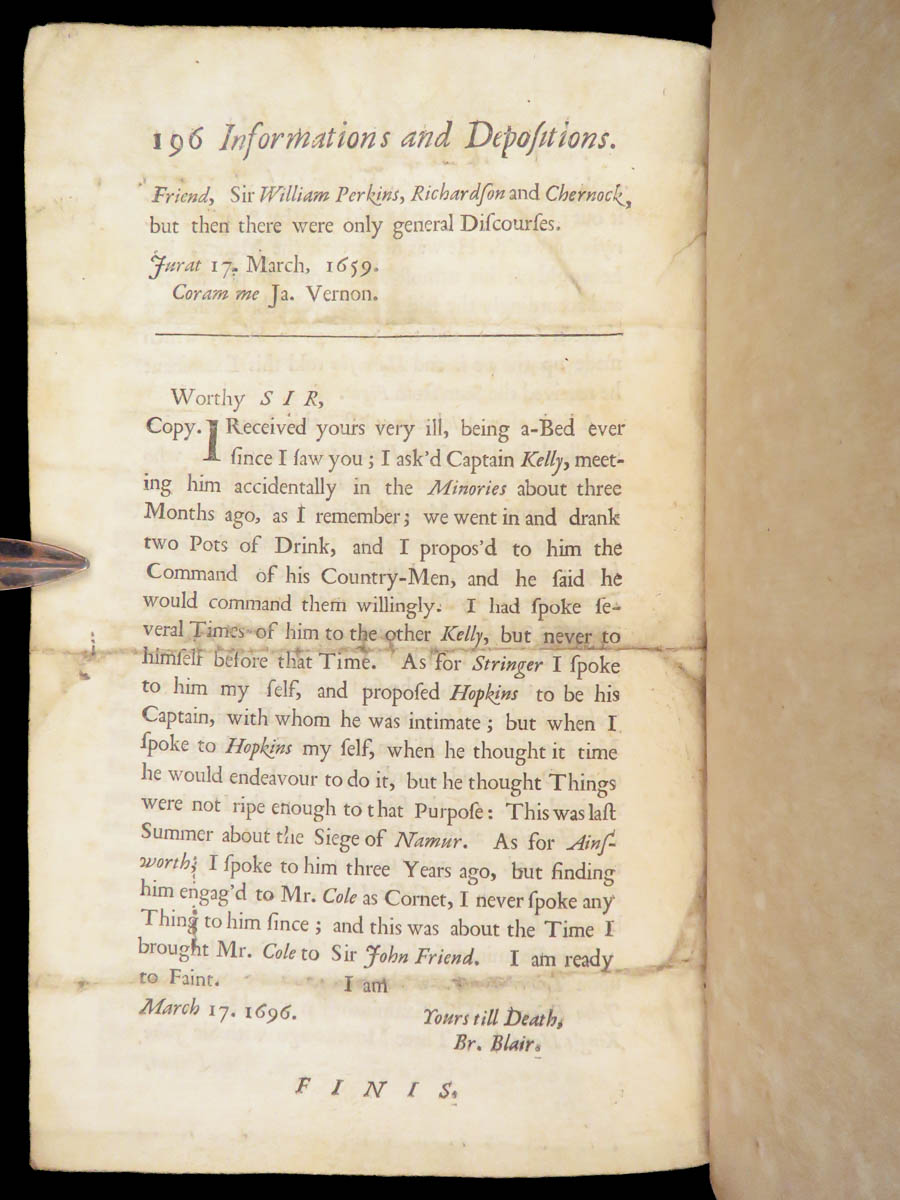 196 Informations and Depoſitions.
Friend, Sir William Perkins, Richardſon and Chernock,
but then there were only general Diſcourſes.
Jurat 17. March, 1659.
Coram me Ja. Vernon.
Worthy SIR,
Copy. I Received yours very ill, being a-Bed ever
ſince I ſaw you; I ask'd Captain Kelly, meet-
ing him accidentally in the Minories about three
Months ago, as I remember; we went in and drank
two Pots of Drink, and I propos'd to him the
Command of his Country-Men, and he ſaid he
would command them willingly. I had ſpoke ſe-
veral Times of him to the other Kelly, but never to
himſelf before that Time. As for Stringer I ſpoke
to him my ſelf, and propoſed Hopkins to be his
Captain, with whom he was intimate; but when I
ſpoke to Hopkins my ſelf, when he thought it time
he would endeavour to do it, but he thought Things
were not ripe enough to that Purpoſe: This was laſt
Summer about the Siege of Namur. As for Ainſ-
worth; I ſpoke to him three Years ago, but finding
him engag'd to Mr. Cole as Cornet, I never ſpoke any
Thing to him ſince; and this was about the Time I
brought Mr. Cole to Sir John Friend. I am ready
to Faint. I am
March 17. 1696. Yours till Death,
Br. Blair.
FINIS.